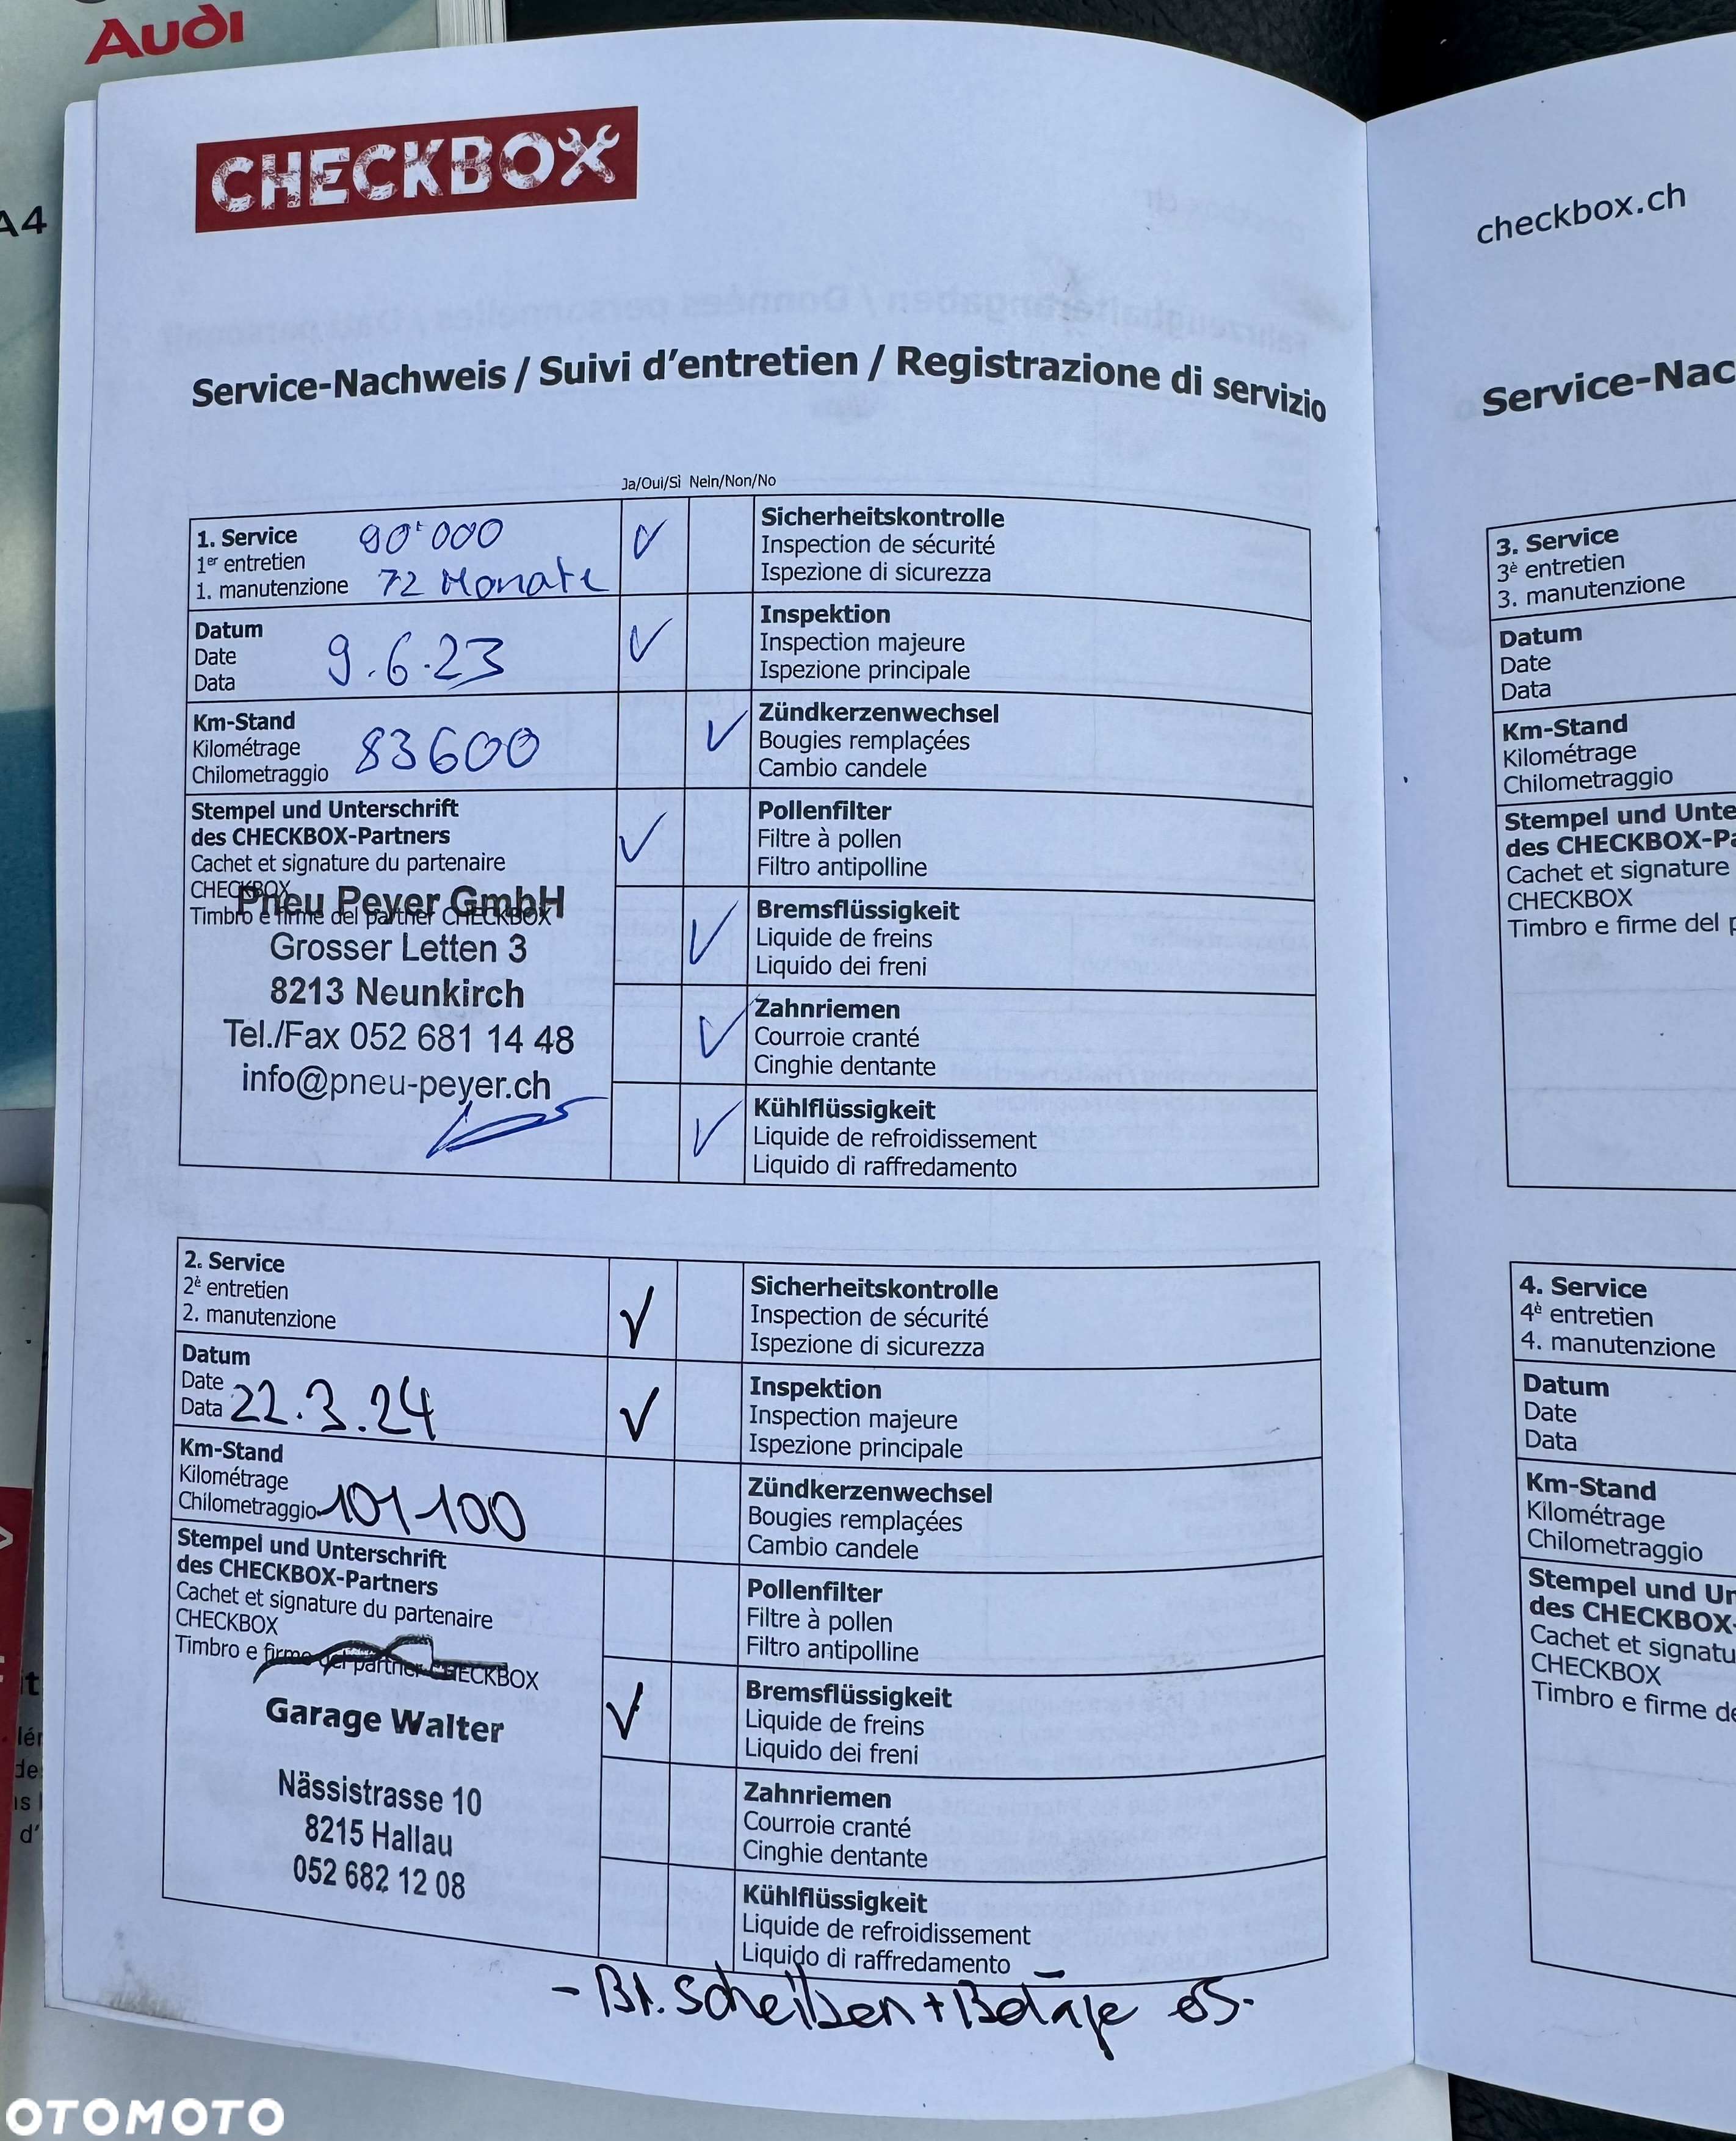 Audi
A4
CHECKBOX
Service-Nachweis / Suivi d'entretien / Registrazione di servizio
Ja/Oui/Sì Nein/Non/No
1. Service 90'000
1er entretien
1. manutenzione 72 Monate
Sicherheitskontrolle
Inspection de sécurité
Ispezione di sicurezza
Datum
Date 9.6.23
Data
Inspektion
Inspection majeure
Ispezione principale
Km-Stand
Kilométrage 83600
Chilometraggio
Zündkerzenwechsel
Bougies remplaçées
Cambio candele
Stempel und Unterschrift
des CHECKBOX-Partners
Cachet et signature du partenaire
CHECKBOX
Timbro e firme del partner CHECKBOX
Pneu Peyer GmbH
Grosser Letten 3
8213 Neunkirch
Tel./Fax 052 681 14 48
info@pneu-peyer.ch
Pollenfilter
Filtre à pollen
Filtro antipolline
Bremsflüssigkeit
Liquide de freins
Liquido dei freni
Zahnriemen
Courroie cranté
Cinghie dentante
Kühlflüssigkeit
Liquide de refroidissement
Liquido di raffredamento
2. Service
2è entretien
2. manutenzione
Sicherheitskontrolle
Inspection de sécurité
Ispezione di sicurezza
Datum
Date
Data 22.3.24
Inspektion
Inspection majeure
Ispezione principale
Km-Stand
Kilométrage
Chilometraggio 101100
Zündkerzenwechsel
Bougies remplaçées
Cambio candele
Stempel und Unterschrift
des CHECKBOX-Partners
Cachet et signature du partenaire
CHECKBOX
Timbro e firme del partner CHECKBOX
Garage Walter
Nässistrasse 10
8215 Hallau
052 682 12 08
Pollenfilter
Filtre à pollen
Filtro antipolline
Bremsflüssigkeit
Liquide de freins
Liquido dei freni
Zahnriemen
Courroie cranté
Cinghie dentante
Kühlflüssigkeit
Liquide de refroidissement
Liquido di raffredamento
- Br. Scheiben + Beläge
checkbox.ch
Service-Nac
3. Service
3è entretien
3. manutenzione
Datum
Date
Data
Km-Stand
Kilométrage
Chilometraggio
Stempel und Unte
des CHECKBOX-Pa
Cachet et signature
CHECKBOX
Timbro e firme del p
4. Service
4è entretien
4. manutenzione
Datum
Date
Data
Km-Stand
Kilométrage
Chilometraggio
Stempel und Un
des CHECKBOX-
Cachet et signatu
CHECKBOX
Timbro e firme de
OTOMOTO